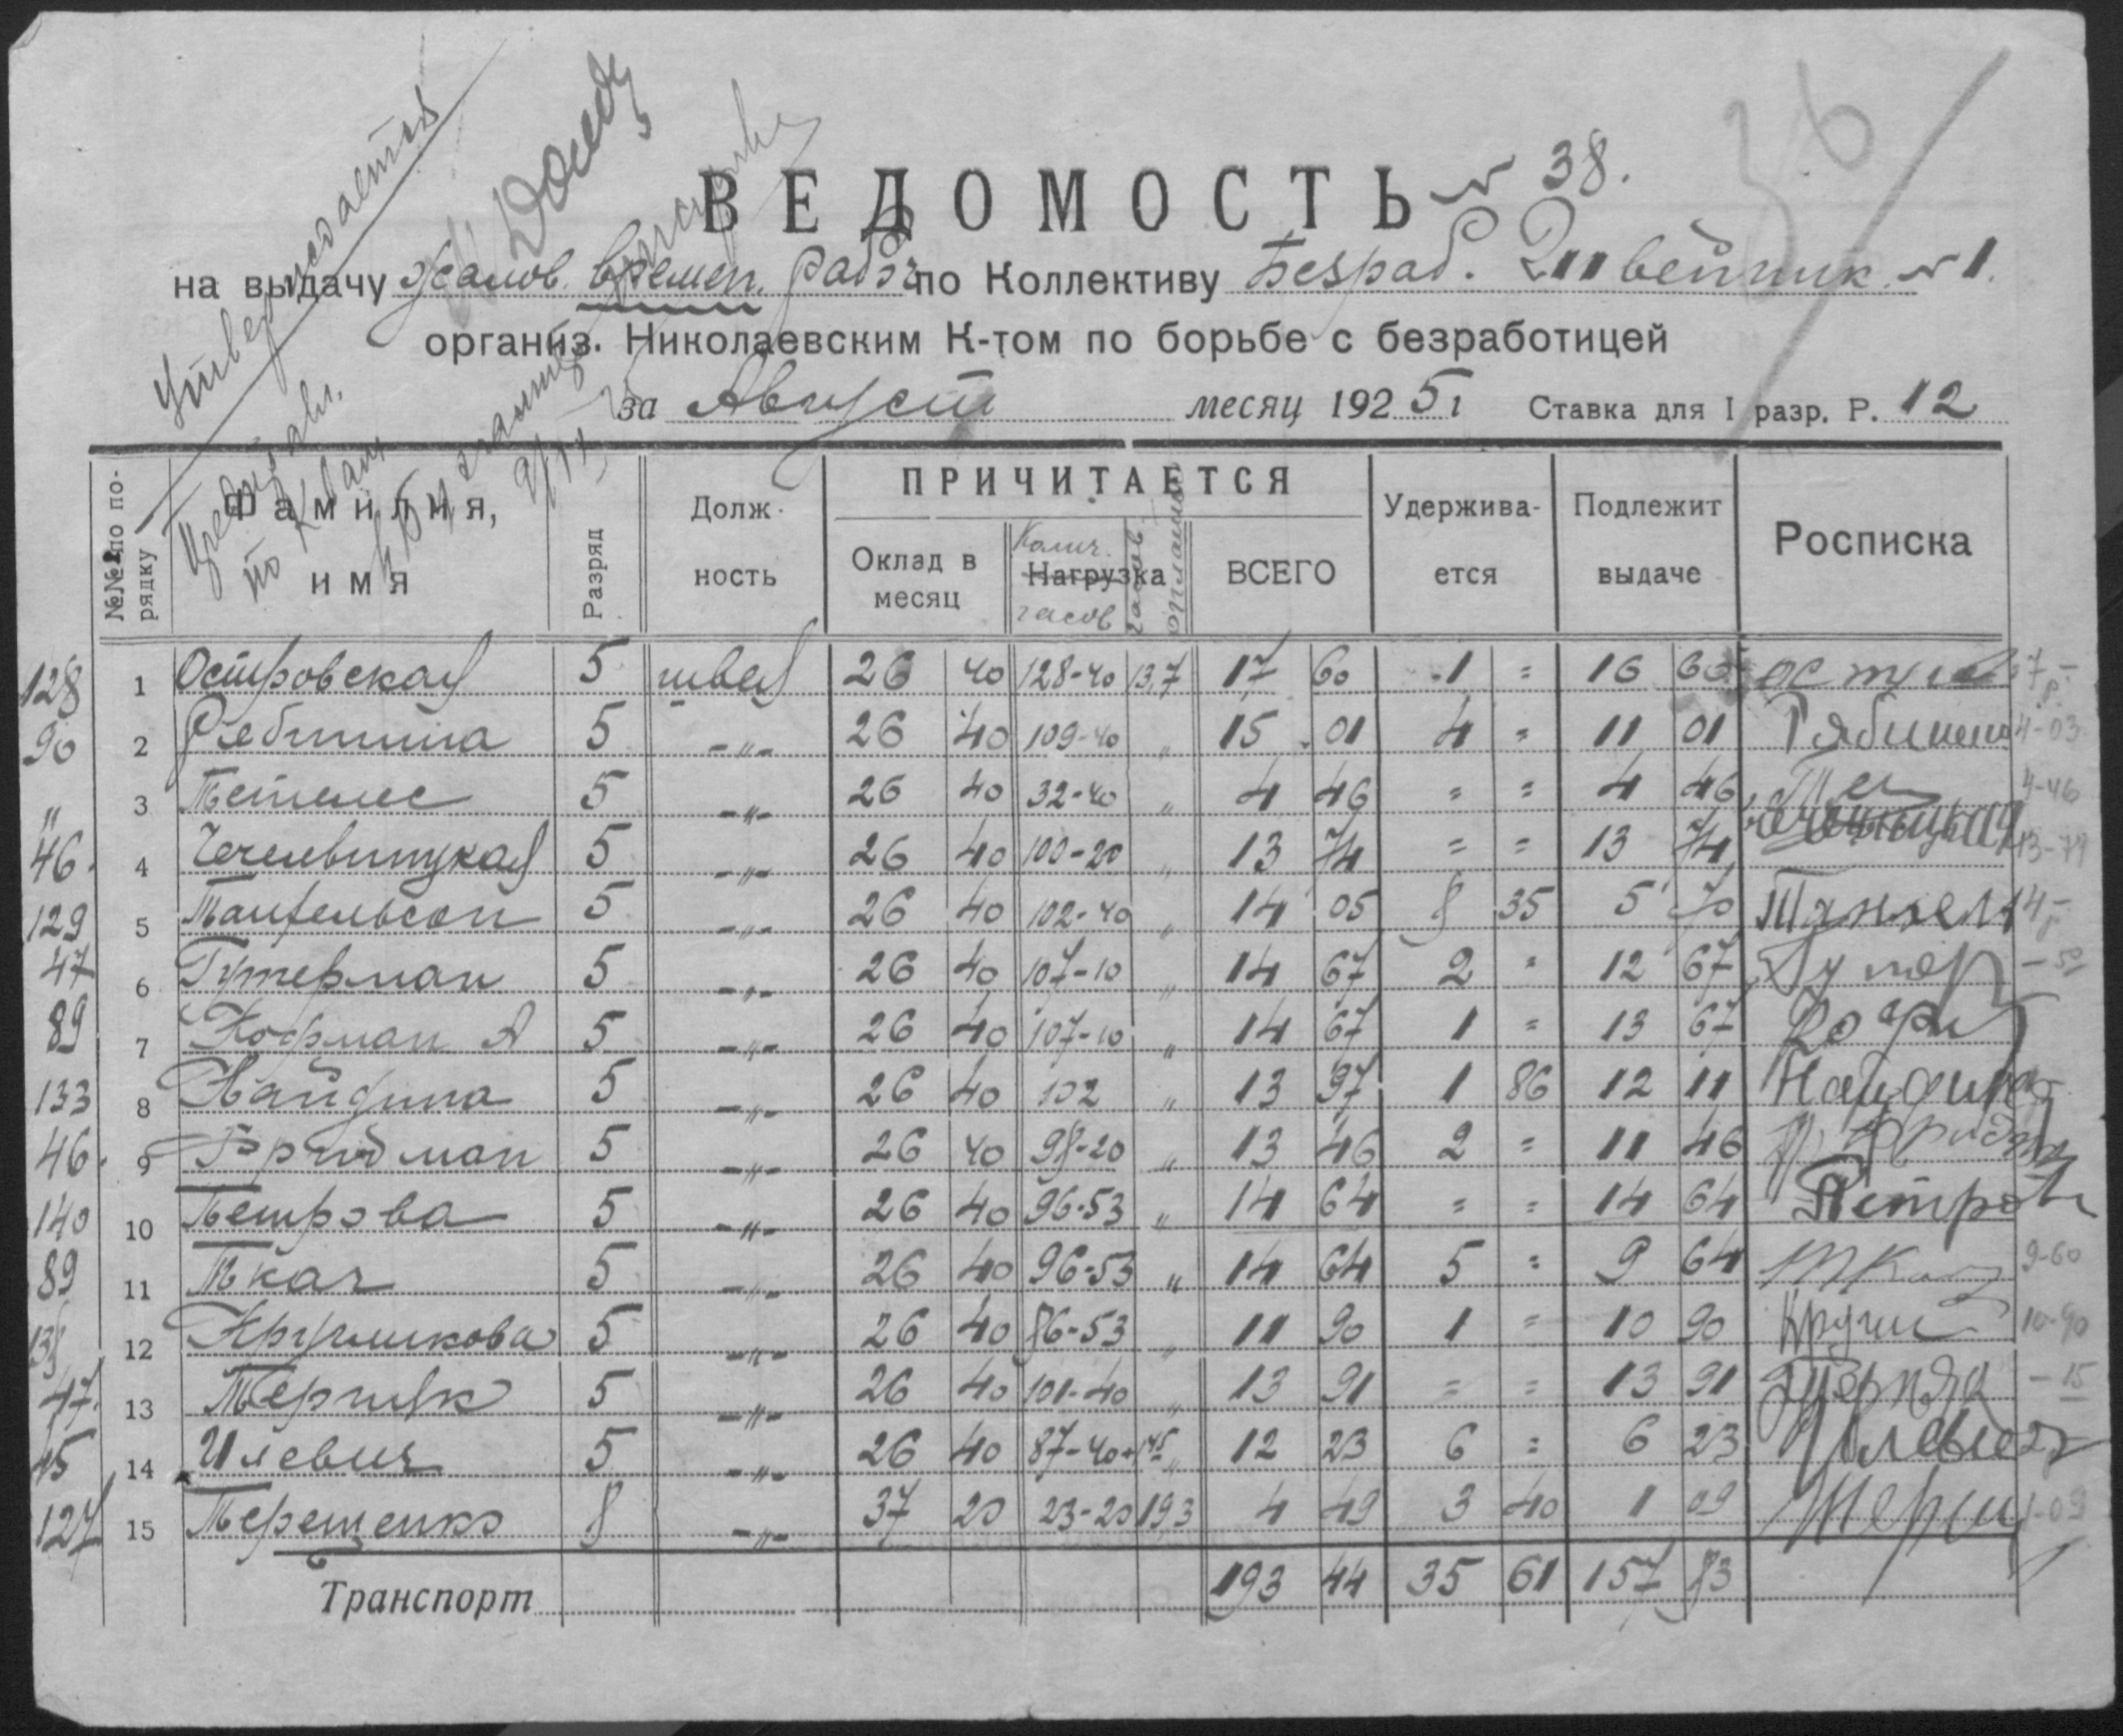 Утверждается
ВЕДОМОСТЬ № 38.
36
на выдачу жалов. времен. рабоч. по Коллективу Безраб. Швейник № 1.
организ. Николаевским К-том по борьбе с безработицей
за Август месяц 1925 г Ставка для I разр. Р. 12
№№ по по-рядку Фамилия, имя Разряд Долж-ность ПРИЧИТАЕТСЯ Удержива-ется Подлежит выдаче Росписка
Оклад в месяц Колич. Нагрузка часов ВСЕГО
128 1 Островская 5 швея 26 40 128-40 13,7 17 60 1 = 16 60
90 2 Рябинина 5 -"- 26 40 109-40 " 15 01 4 = 11 01 Рябинина 4-03
" 3 Тетелес 5 -"- 26 40 32-40 " 4 46 = = 4 46 4-46
46. 4 Чечельницкая 5 -"- 26 40 100-20 " 13 74 = = 13 74 13-74
129 5 Танфельсон 5 -"- 26 40 102-40 " 14 05 8 35 5 70
47 6 Гутерман 5 -"- 26 40 107-10 " 14 67 2 = 12 67
89 7 Кофман А 5 -"- 26 40 107-10 " 14 67 1 = 13 67
133 8 Найдина 5 -"- 26 40 102 " 13 97 1 86 12 11 Найдина
46. 9 Фридман 5 -"- 26 40 98-20 " 13 46 2 = 11 46
140 10 Петрова 5 -"- 26 40 96-53 " 14 64 = = 14 64
89 11 Ткач 5 -"- 26 40 96-53 " 14 64 5 = 9 64 Ткач 9-60
12 Кругликова 5 -"- 26 40 86-53 " 11 90 1 = 10 90 10-90
47. 13 Терняк 5 -"- 26 40 101-40 " 13 91 = = 13 91 -15
45 14 Илевич 5 -"- 26 40 87-40 " 12 23 6 = 6 23
127 15 Терещенко 8 -"- 37 20 23-20 193 4 49 3 40 1 09 1-09
Транспорт 193 44 35 61 157 83